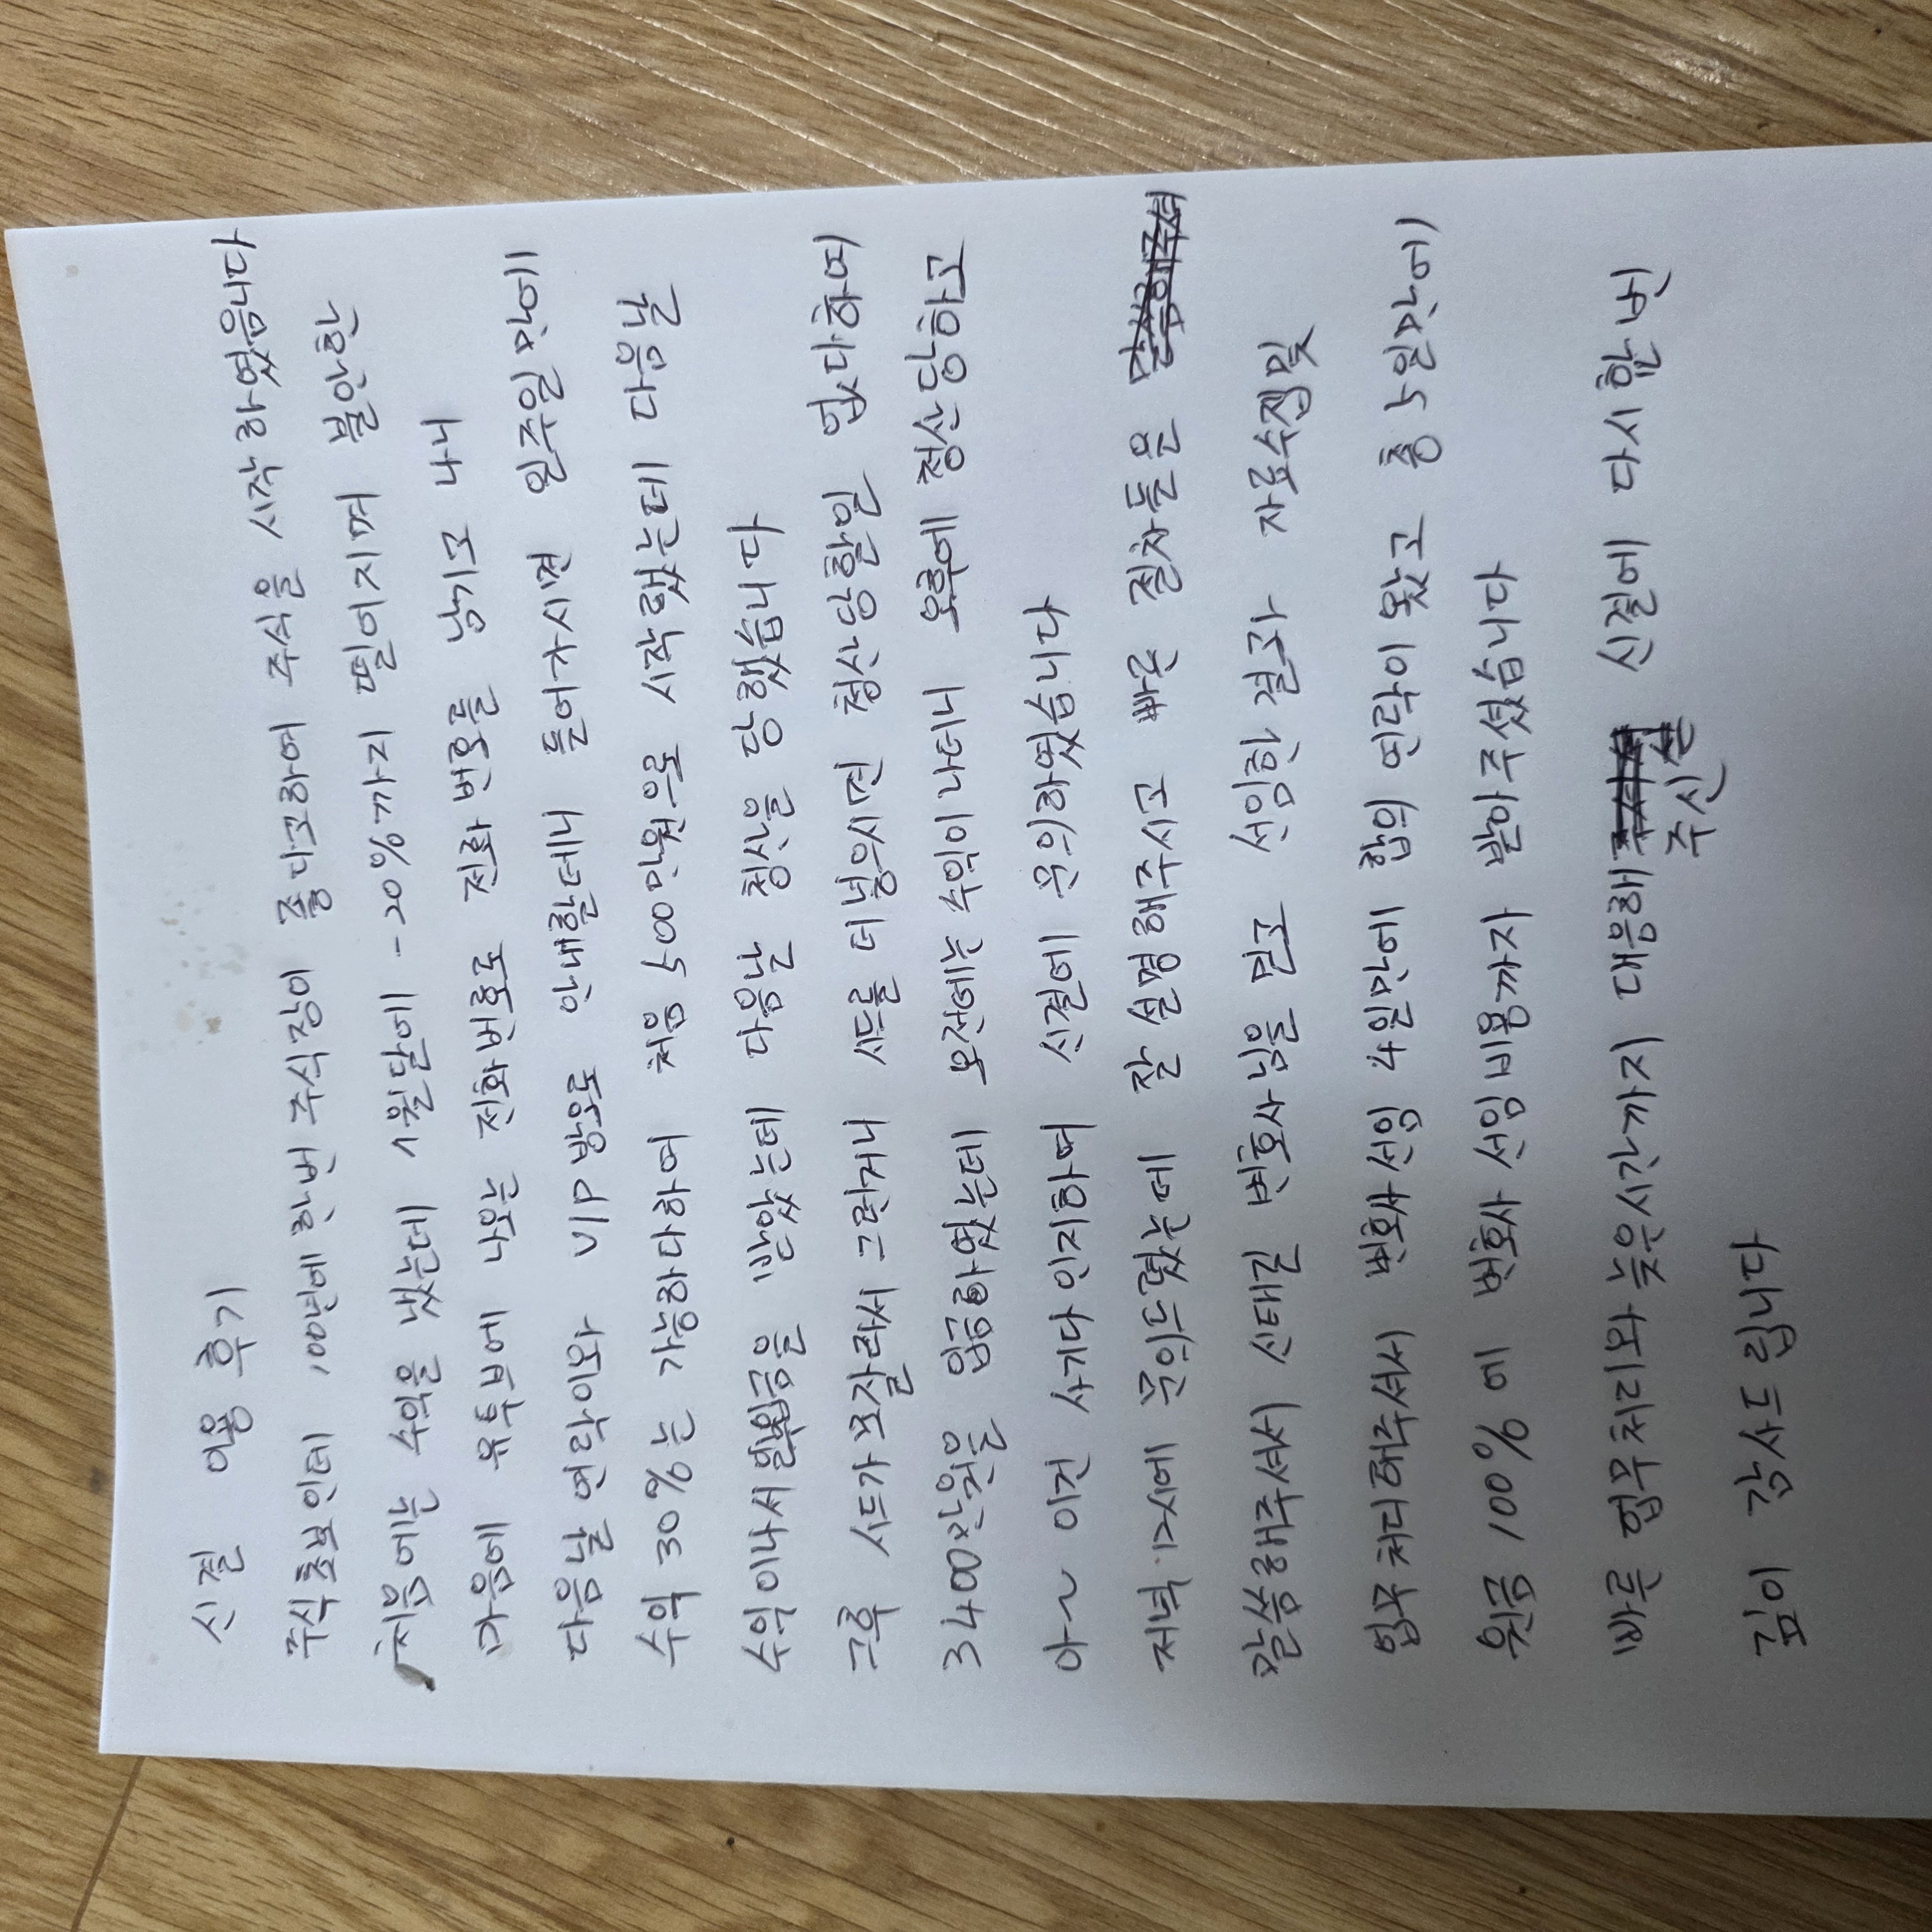 신결 이용 후기
주식초보인데 100년에 한번 주식장이 좋다고하여 주식을 시작하였습니다
처음에는 수익을 냈는데 1월달에 -20%까지 떨어지며 불안한
마음에 유튜브에 나오는 전화번호로 전화번호를 남기고 나니
다음날 연락이와 VIP방으로 안내할테니 들어가시면 일주일만에
수익 30%는 가능하다하여 처음 500만원으로 시작했는데 다음날
수익이나서 입금을 받았는데 다음날 청산을 당했습니다
그후 시드가 모잘라서 그런거니 시드를 더넣으시면 청산당할일 없다하여
3400만원을 입금하였는데 오전에는 수익이나더니 오후에 청산당하고
아~ 이건 사기다 인지하여 신결에 문의하였습니다
저녁 12시에 문의드렸는데 잘 설명해주시고 빠른 절차들은
말씀해주셔서 신태길 변호사님을 믿고 선임한 결과 자료수정및
업무처리해주셔서 변호사선임 4일만에 합의 연락이 왔고 총 5일만에
원금 100%에 변호사 선임비용까지 받아주셨습니다
빠른 업무처리와 늦은시간까지 대응해주신 신결에 다시 한번
깊이 감사드립니다